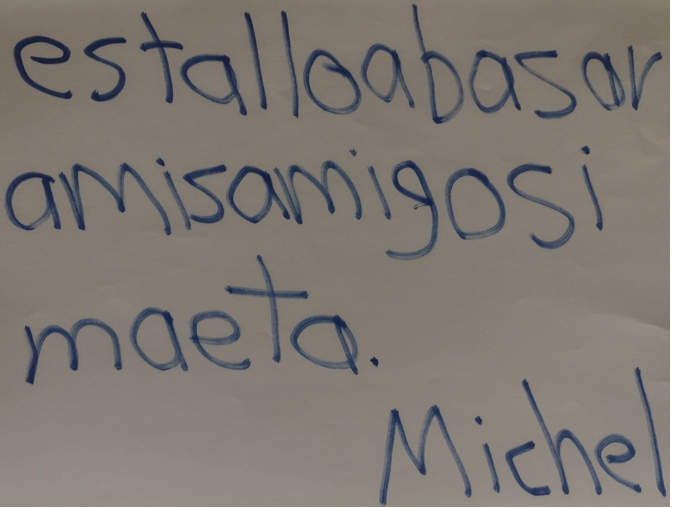 estalloabasar
amisamigosi
maeta.
Michel